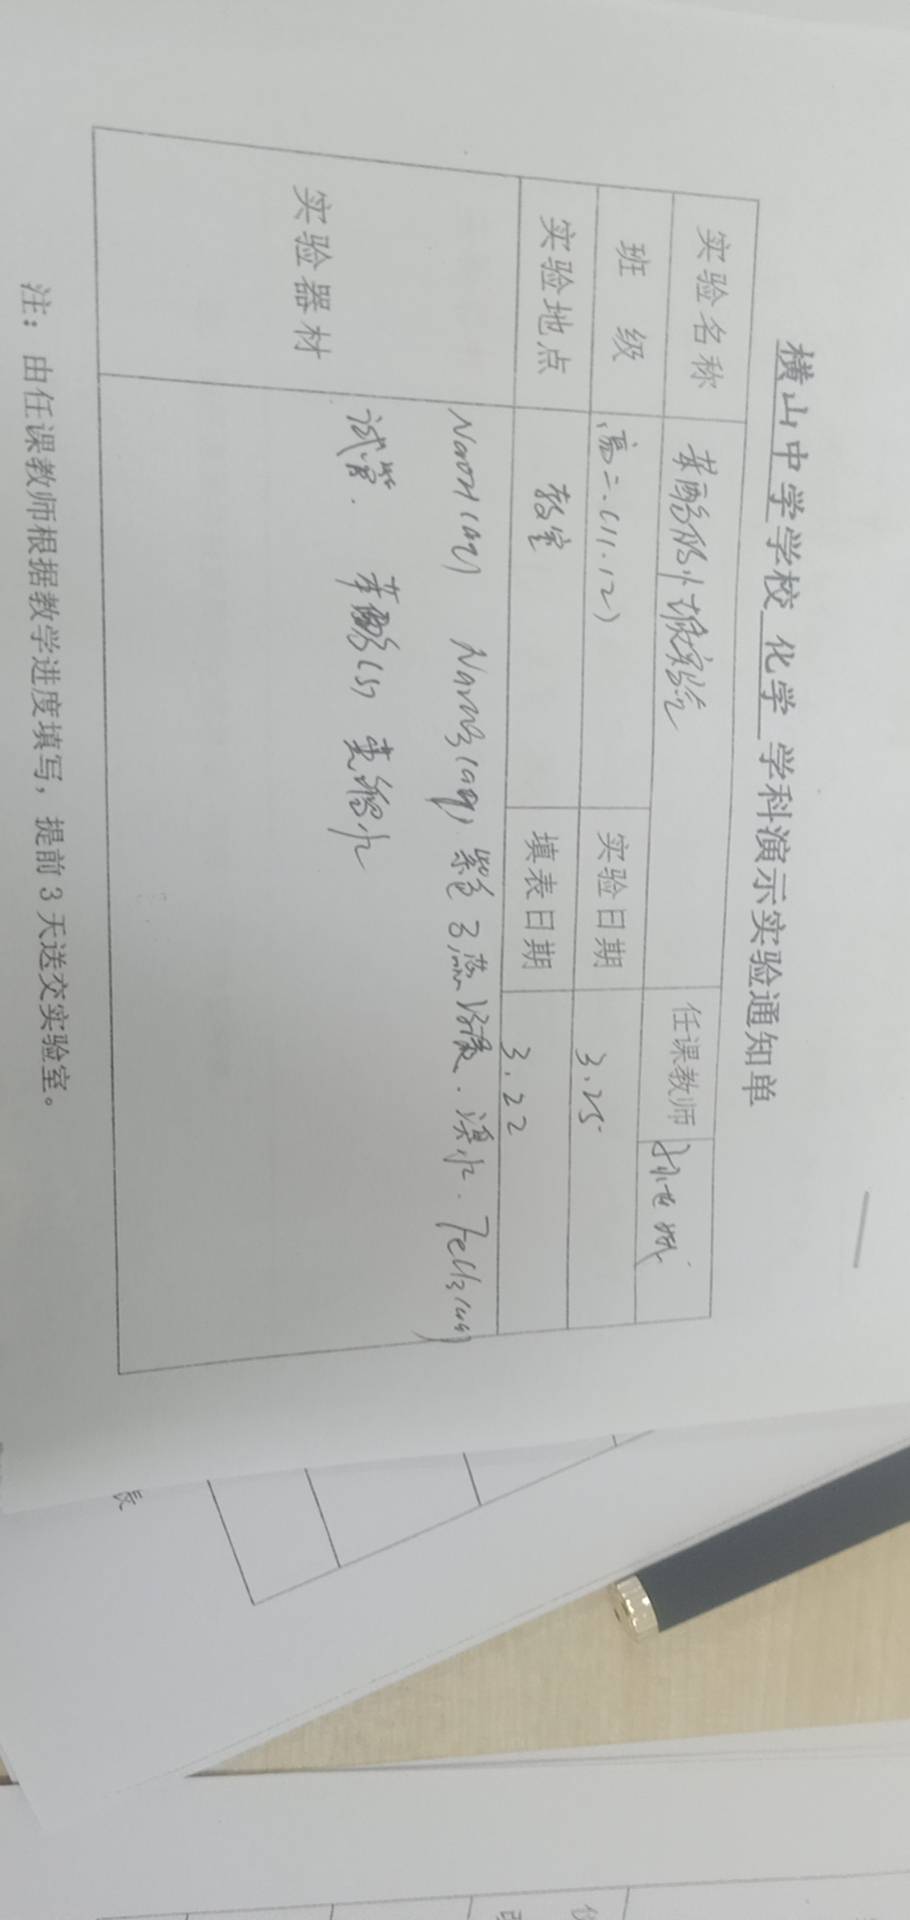 横山中学学校 化学 学科演示实验通知单
实验名称 苯酚的性质实验 任课教师
班 级 高二.(11.12) 实验日期 3.25
实验地点 教室 填表日期 3.22
实验器材
NaOH(aq) Na2CO3(aq) 紫色石蕊溶液. 溴水. FeCl3(aq)
试管. 苯酚(s) 蒸馏水
注：由任课教师根据教学进度填写，提前3天送交实验室。
长